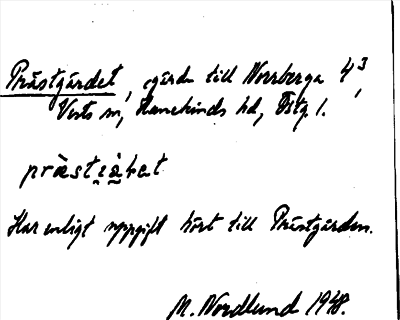 Prästgärdet, ägor till Norrberga 4³,
Vists sn, Hanekinds hd, Östg. l.
präst
Har enligt uppgift hört till Prästgården.
M. Nordlund 1948.